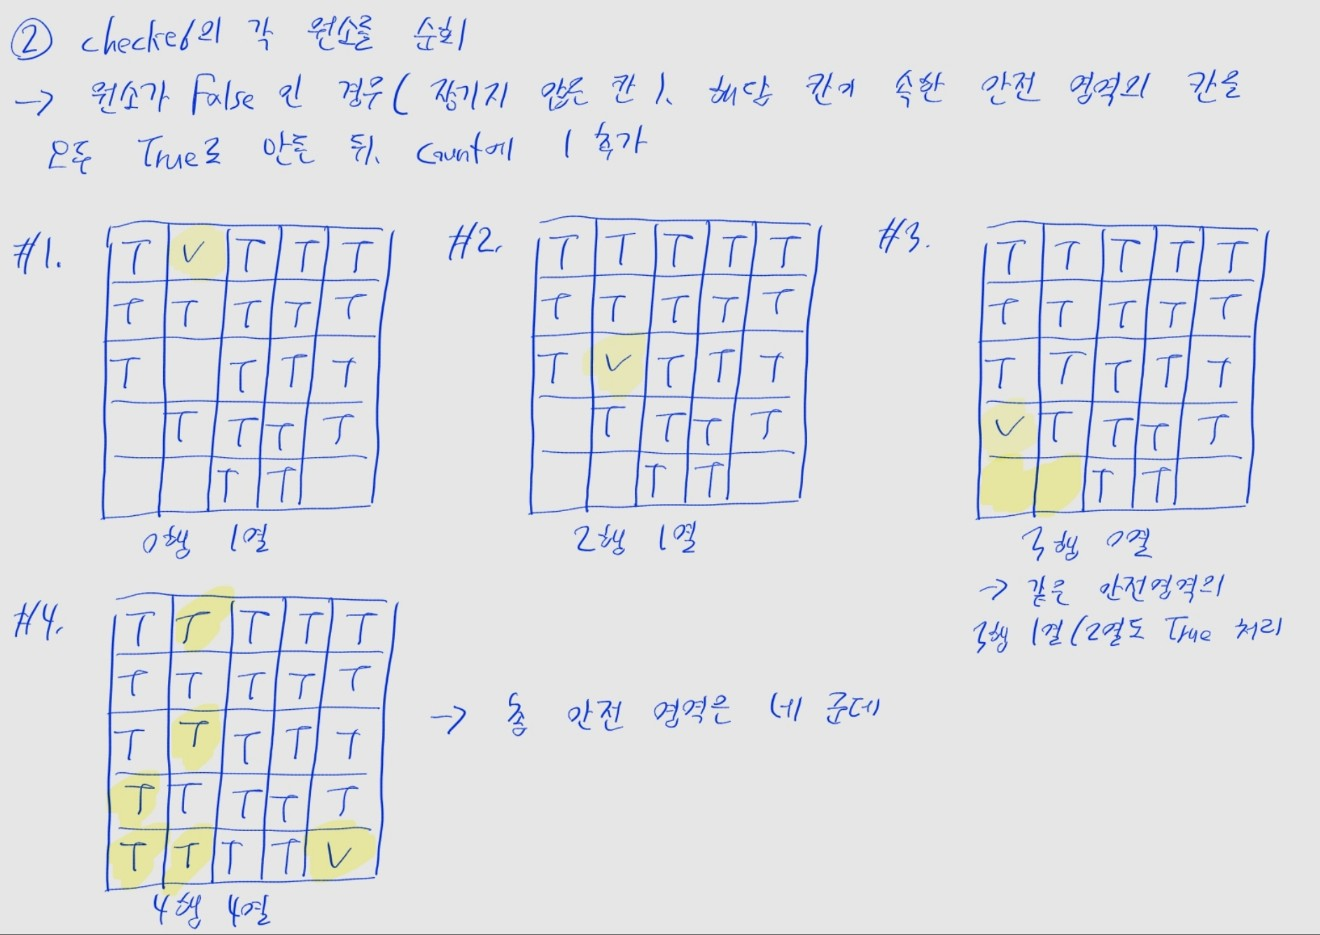 ② checked의 각 원소를 순회
→ 원소가 False 인 경우( 잠기지 않은 칸 ), 해당 칸이 속한 안전 영역의 칸을
모두 True로 만든 뒤, Count에 1 추가
#1.
T V T T T
T T T T T
T T T T
T T T T
T T
0행 1열
#2.
T T T T T
T T T T T
T V T T T
T T T T
T T
2행 1열
#3.
T T T T T
T T T T T
T T T T T
V T T T T
T T
3행 0열
→ 같은 안전영역의
3행 1열/2열도 True 처리
#4.
T T T T T
T T T T T
T T T T T
T T T T T
T T T T V
4행 4열
→ 총 안전 영역은 네 군데